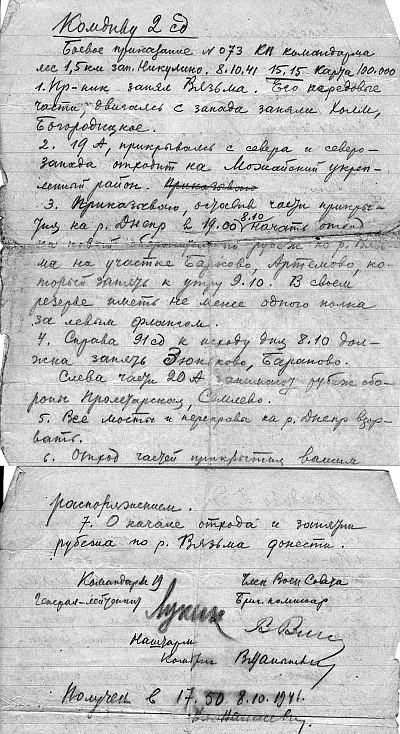 Комдиву 2 сд
Боевое приказание №073 КП командарма
лес 1,5 км зап. Никулино. 8.10.41 15.15 Карта 100.000
1. Пр-ник занял Вязьма. Его передовые
части, двигаясь с запада заняли Холм,
Богородицкое.
2. 19 А, прикрываясь с севера и северо-
запада отходит на Можайский укреп-
ленный район. Приказываю
3. Приказываю, оставив части прикры-
тия на р. Днепр в 19.00 8.10 начать отход
на новый оборонит. рубеж по р. Вязь
ма на участке Барково, Артемово, ко-
торый занять к утру 9.10. В своем
резерве иметь не менее одного полка
за левым флангом.
4. Справа 91 сд к исходу дня 8.10 дол-
жна занять Зюньково, Бараново.
Слева части 20 А занимают рубеж обо-
роны Пролетарская, Семлево.
5. Все мосты и переправы на р. Днепр взор-
вать.
6. Отход частей прикрытия вашим
распоряжением.
7. О начале отхода и занятии
рубежа по р. Вязьма донести.
Командарм 19 Член Воен Совета
Генерал-лейтенант Лукин Бриг. комиссар
Наштарм
Комбриг
Получен в 17.50 8.10.1941.